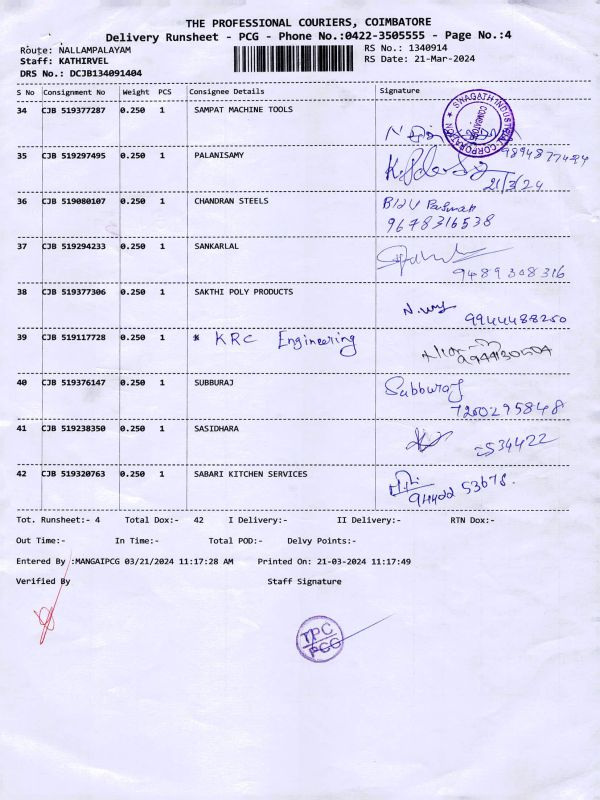 THE PROFESSIONAL COURIERS, COIMBATORE
Delivery Runsheet - PCG - Phone No.:0422-3505555 - Page No.:4
Route: NALLAMPALAYAM
RS No.: 1340914
Staff: KATHIRVEL
RS Date: 21-Mar-2024
DRS No.: DCJB134091404
S No Consignment No Weight PCS Consignee Details Signature
34 CJB 519377287 0.250 1 SAMPAT MACHINE TOOLS
SWAGATH INDUSTRIAL CORPORATION
COIMBATORE
35 CJB 519297495 0.250 1 PALANISAMY
9894877484
21/3/24
36 CJB 519080107 0.250 1 CHANDRAN STEELS
9678316538
37 CJB 519294233 0.250 1 SANKARLAL
9489308316
38 CJB 519377306 0.250 1 SAKTHI POLY PRODUCTS
9944488250
39 CJB 519117728 0.250 1 * KRC Engineering
40 CJB 519376147 0.250 1 SUBBURAJ Subburaj
7200295848
41 CJB 519238350 0.250 1 SASIDHARA
42 CJB 519320763 0.250 1 SABARI KITCHEN SERVICES
Tot. Runsheet:- 4 Total Dox:- 42 I Delivery:- II Delivery:- RTN Dox:-
Out Time:- In Time:- Total POD:- Delvy Points:-
Entered By :MANGAIPCG 03/21/2024 11:17:28 AM Printed On: 21-03-2024 11:17:49
Verified By Staff Signature
TPC
PCG